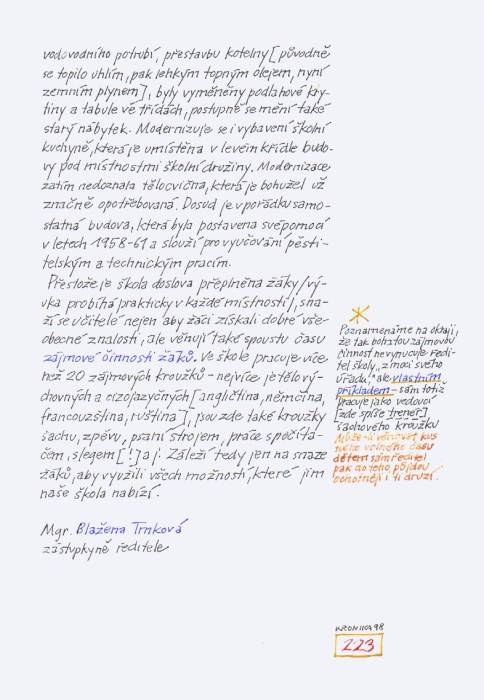 vodovodního potrubí, přestavbu kotelny [původně
se topilo uhlím, pak lehkým topným olejem, nyní
zemním plynem], byly vyměněny podlahové kry-
tiny a tabule ve třídách, postupně se mění také
starý nábytek. Modernizuje se i vybavení školní
kuchyně, která je umístěna v levém křídle budo-
vy pod místnostmi školní družiny. Modernizace
zatím nedoznala tělocvična, která je bohužel už
značně opotřebovaná. Dosud je v pořádku samo-
statná budova, která byla postavena svépomocí
v letech 1958-61 a slouží pro vyučování pěsti-
telským a technickým pracím.
Přestože je škola doslova přeplněna žáky /vý-
uka probíhá prakticky v každé místnosti/, sna-
ží se učitelé nejen aby žáci získali dobré vše-
obecné znalosti, ale věnují také spoustu času
zájmové činnosti žáků. Ve škole pracuje více
než 20 zájmových kroužků - nejvíce je tělový-
chovných a cizojazyčných [angličtina, němčina,
francouzština, ruština], jsou zde také kroužky
šachu, zpěvu, psaní strojem, práce s počíta-
čem, šlegem [!] aj. Záleží tedy jen na snaze
žáků, aby využili všech možností, které jim
naše škola nabízí.
Mgr. Blažena Trnková
zástupkyně ředitele
Poznamenáme na okraji,
že tak bohatou zájmovou
činnost nevynucuje ředi-
tel školy „z moci svého
úřadu", ale vlastním
příkladem - sám totiž
pracuje jako vedoucí
[zde spíše trenér]
šachového kroužku
Může-li věnovat kus
svého volného času
dětem sám ředitel
pak do toho půjdou
ochotněji i ti druzí.
KRONIKA 98
223